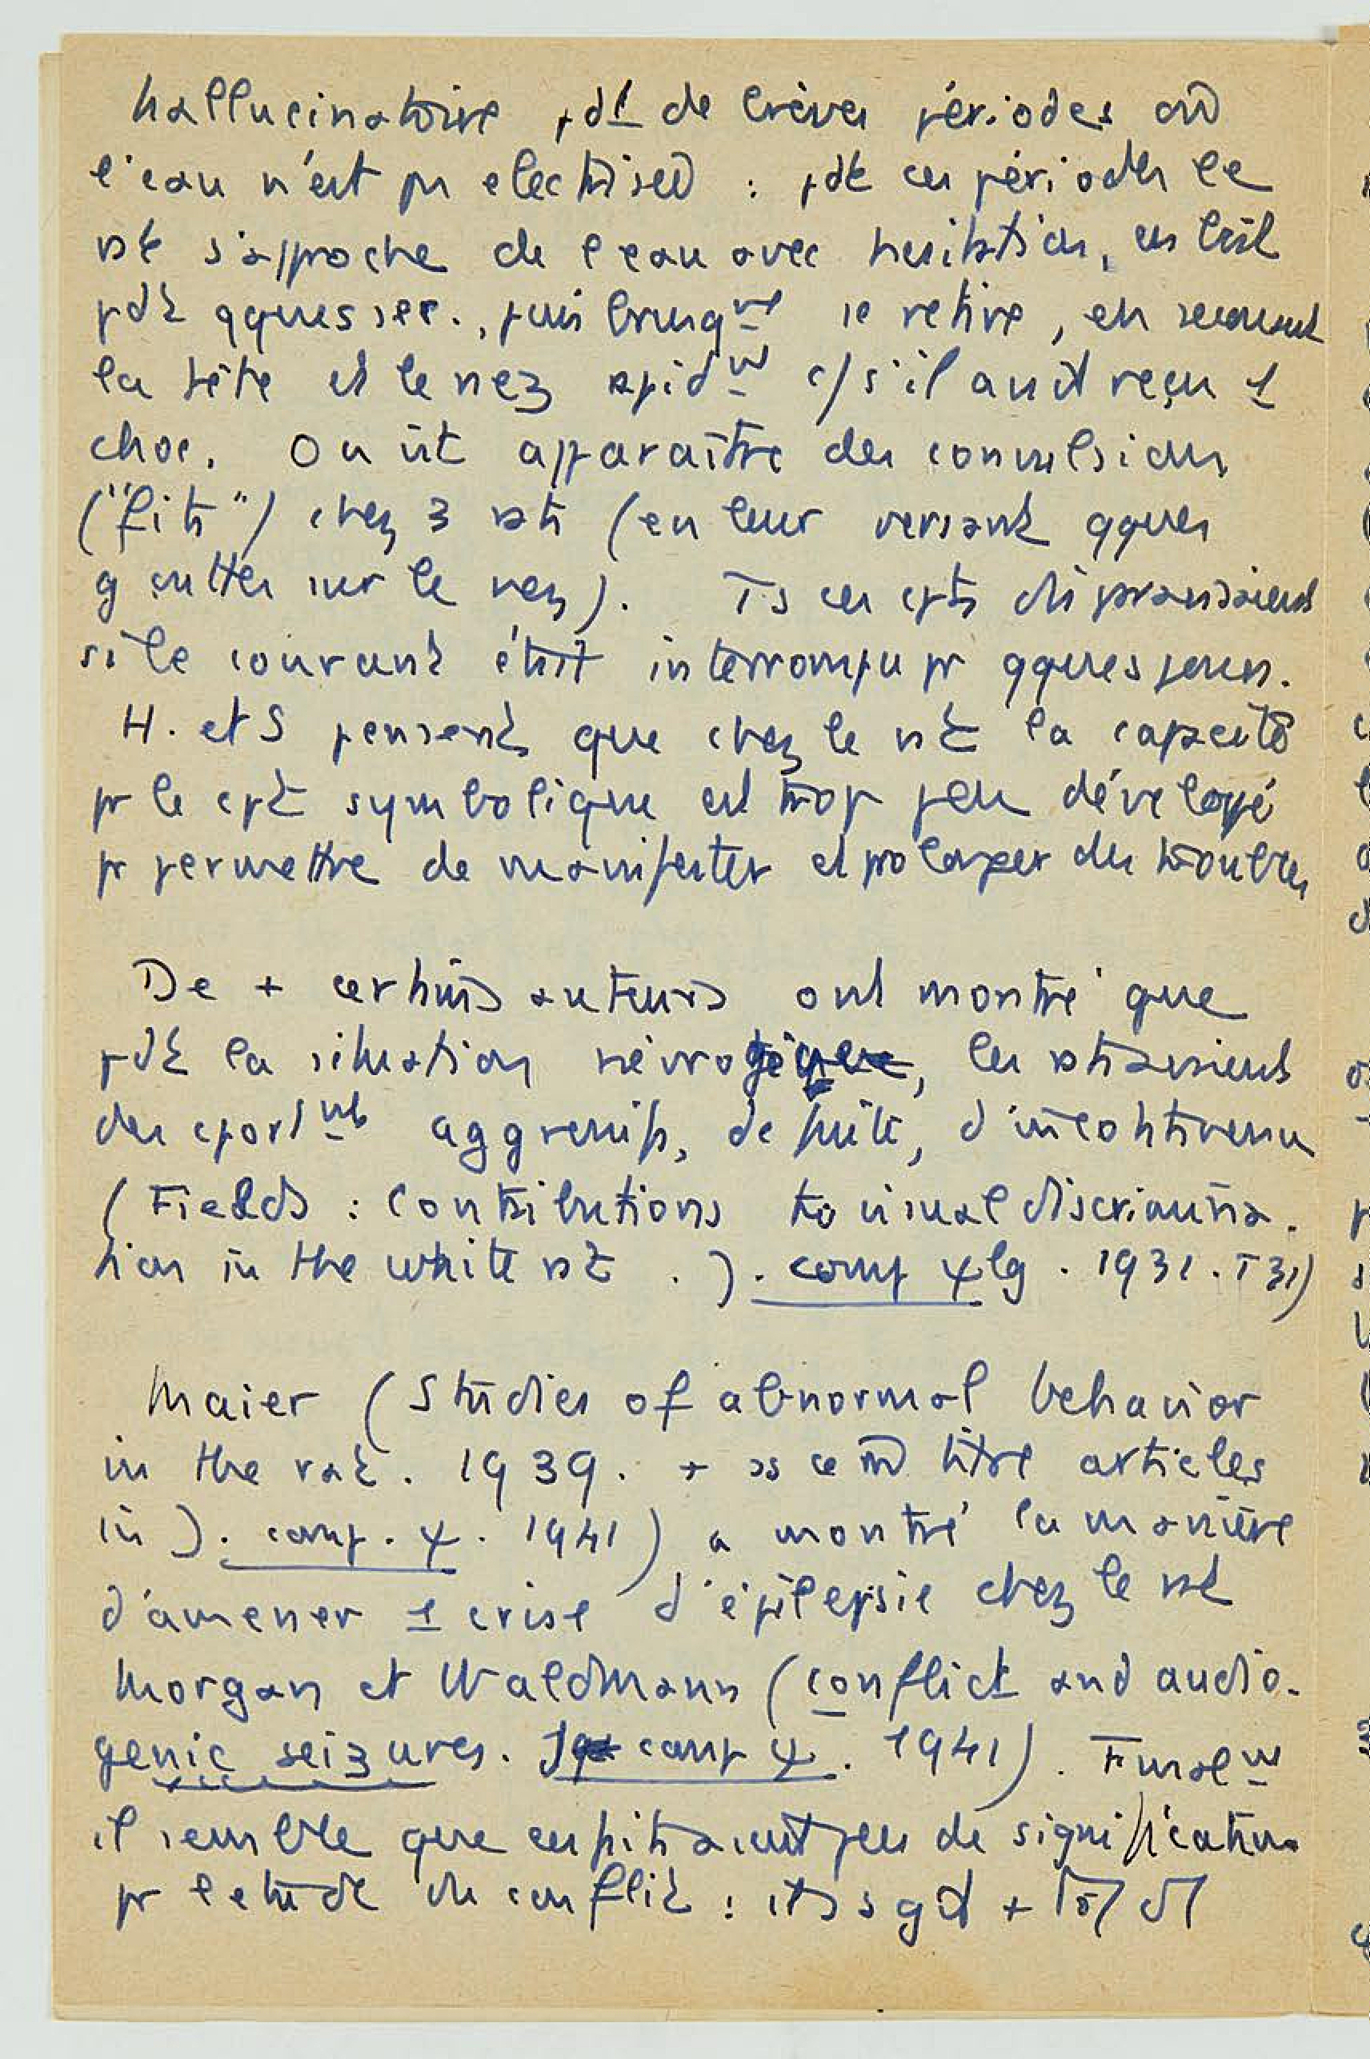 hallucinatoire pdt de brèves périodes où
l'eau n'est pas electrisée : pdt ces périodes le
rat s'approche de l'eau avec hesitation, en boit
pdt qques sec., puis brusqnt se retire, en secouant
la tête et le nez rapidnt c/ s'il avait reçu 1
choc. On vit apparaître des convulsions
("fits") chez 3 rats (en leur versant qques
gouttes sur le nez). Ts ces cpts disparaissaient
si le courant était interrompu pr qques jours.
H. et S pensent que chez le rat la capacité
pr le cpt symbolique est trop peu dévelopé
pr permettre de manifester et prolonger des troubles
De + certains auteurs ont montré que
pdt la situation névrogène, les rats avaient
des cportnts aggressifs, de fuite,
(Fields : Contributions to visual discrimina-
tion in the white rat. J. comp ψlg. 1931. T 31)
Maier (Studies of abnormal behavior
in the rat. 1939. + ss ce m̄ titre articles
in J. comp. ψ. 1941) a montré la manière
d'amener 1 crise d'épilepsie chez le rat
Morgan et Waldmann (conflict and audio-
genic seizures. J comp ψ. 1941). Finalnt
il semble que ces fits aient peu de signification
pr l'etude du conflit : il s'agit +